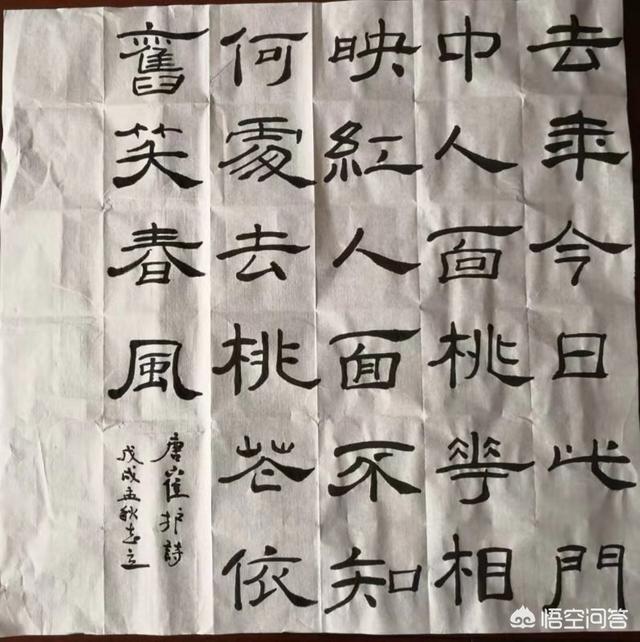 去年今日此門
中人面桃花相
映紅人面不知
何處去桃花依
舊笑春風
唐崔护詩
戊戌孟秋志立
悟空问答